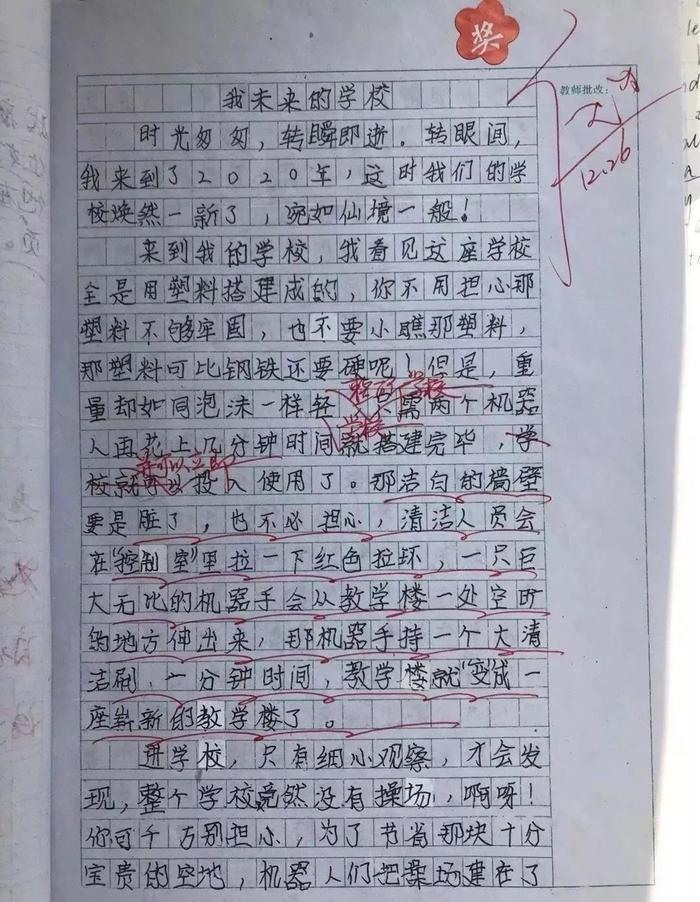 奖
教师批改：
我未来的学校
时光匆匆，转瞬即逝．转眼间，
12.26
我来到了2020年，这时我们的学
校焕然一新了，宛如仙境一般！
来到我的学校，我看见这座学校
全是用塑料搭建成的，你不用担心那
塑料不够牢固，也不要小瞧那塑料，
那塑料可比钢铁还要硬呢！但是，重
量却如同泡沫一样轻，只需两个机器
学校
人再花上几分钟时间就搭建完毕，学
并可以立即
校就可以投入使用了。那洁白的墙壁
要是脏了，也不必担心，清洁人员会
在“控制室”里拉一下红色拉环，一只巨
大无比的机器手会从教学楼一处空旷
的地方伸出来，那机器手持一个大清
洁刷，一分钟时间，教学楼就“变”成一
座崭新的教学楼了。
进学校，只有细心观察，才会发
现，整个学校竟然没有操场，啊呀！
你可千万别担心，为了节省那块十分
宝贵的空地，机器人们把操场建在了